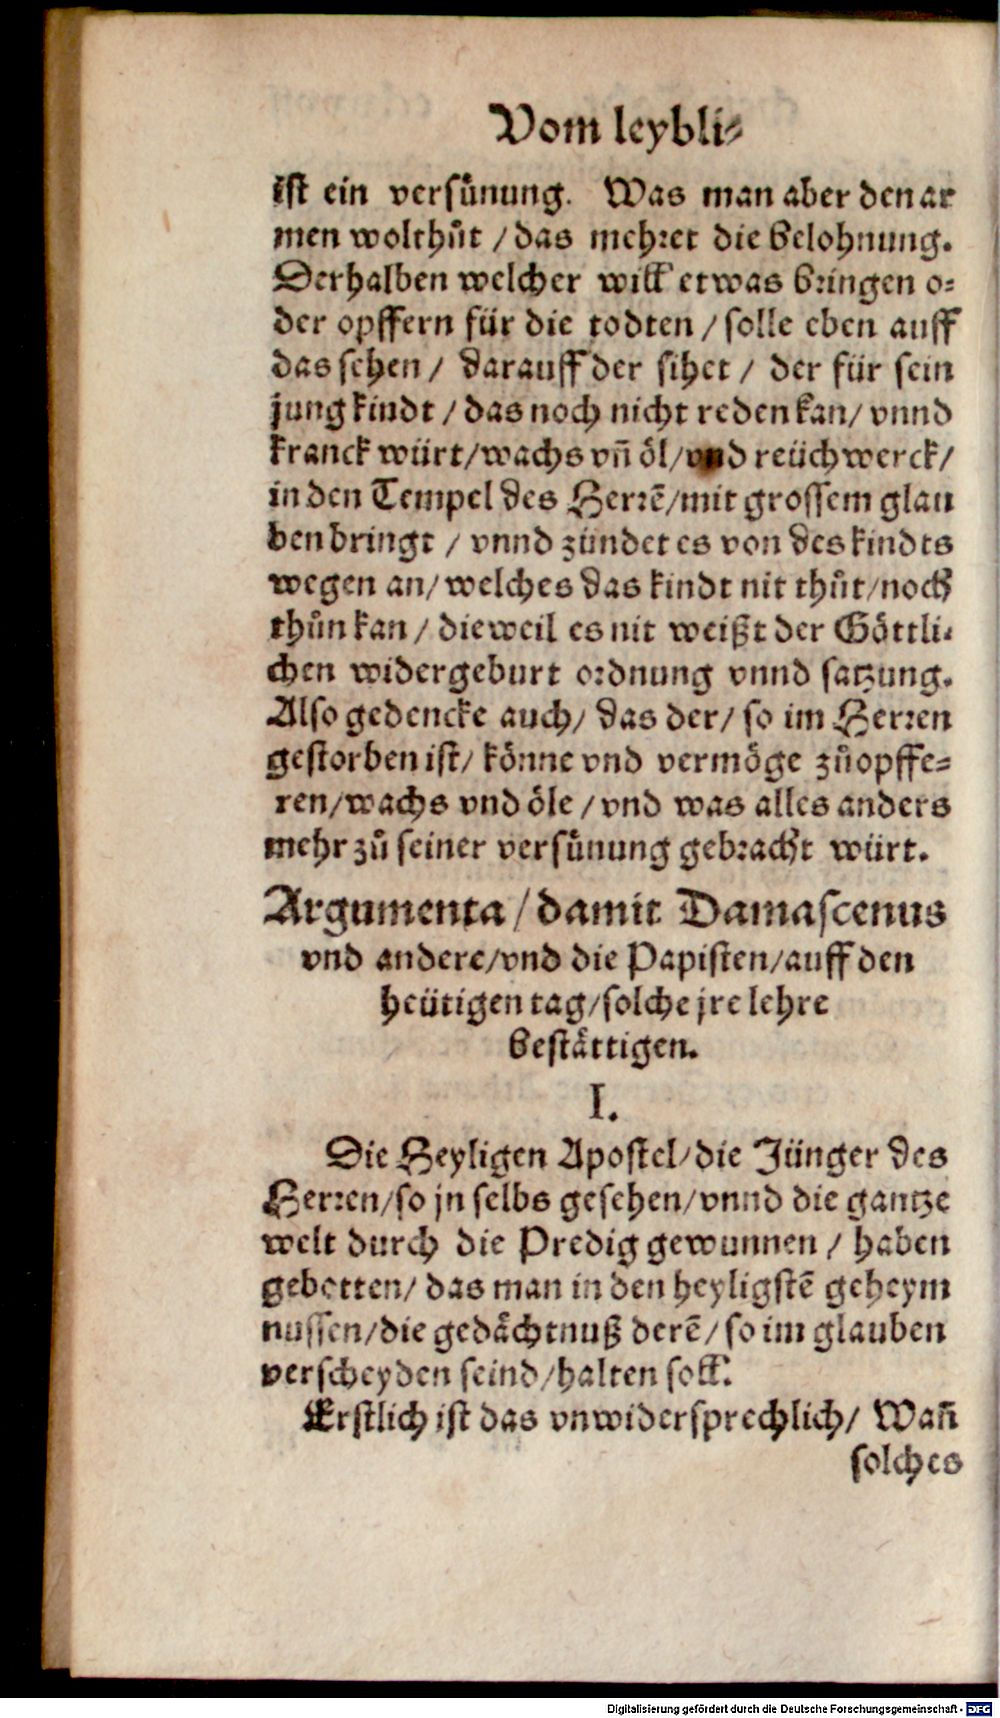 Vom leybli⸗
ist ein versůnung. Was man aber den ar
men wolthůt / das mehret die belohnung.
Derhalben welcher will etwas bringen o⸗
der opffern für die todten / solle eben auff
das sehen / darauff der sihet / der für sein
jung kindt / das noch nicht reden kan / vnnd
kranck würt / wachs vñ öl / vnd reüchwerck /
in den Tempel des Herrẽ / mit grossem glau
ben bringt / vnnd zündet es von des kindts
wegen an / welches das kindt nit thůt / noch
thůn kan / dieweil es nit weißt der Göttli⸗
chen widergeburt ordnung vnnd satzung.
Also gedencke auch / das der / so im Herren
gestorben ist / könne vnd vermöge zůopffe⸗
ren / wachs vnd öle / vnd was alles anders
mehr zů seiner versůnung gebracht würt.
Argumenta / damit Damascenus
vnd andere / vnd die Papisten / auff den
heütigen tag / solche jre lehre
bestättigen.
I.
Die Heyligen Apostel / die Jünger des
Herren / so jn selbs gesehen / vnnd die gantze
welt durch die Predig gewunnen / haben
gebotten / das man in den heyligstẽ geheym
nussen / die gedächtnuß derẽ / so im glauben
verscheyden seind / halten soll.
Erstlich ist das vnwidersprechlich / Wañ
solches
Digitalisierung gefördert durch die Deutsche Forschungsgemeinschaft - DFG